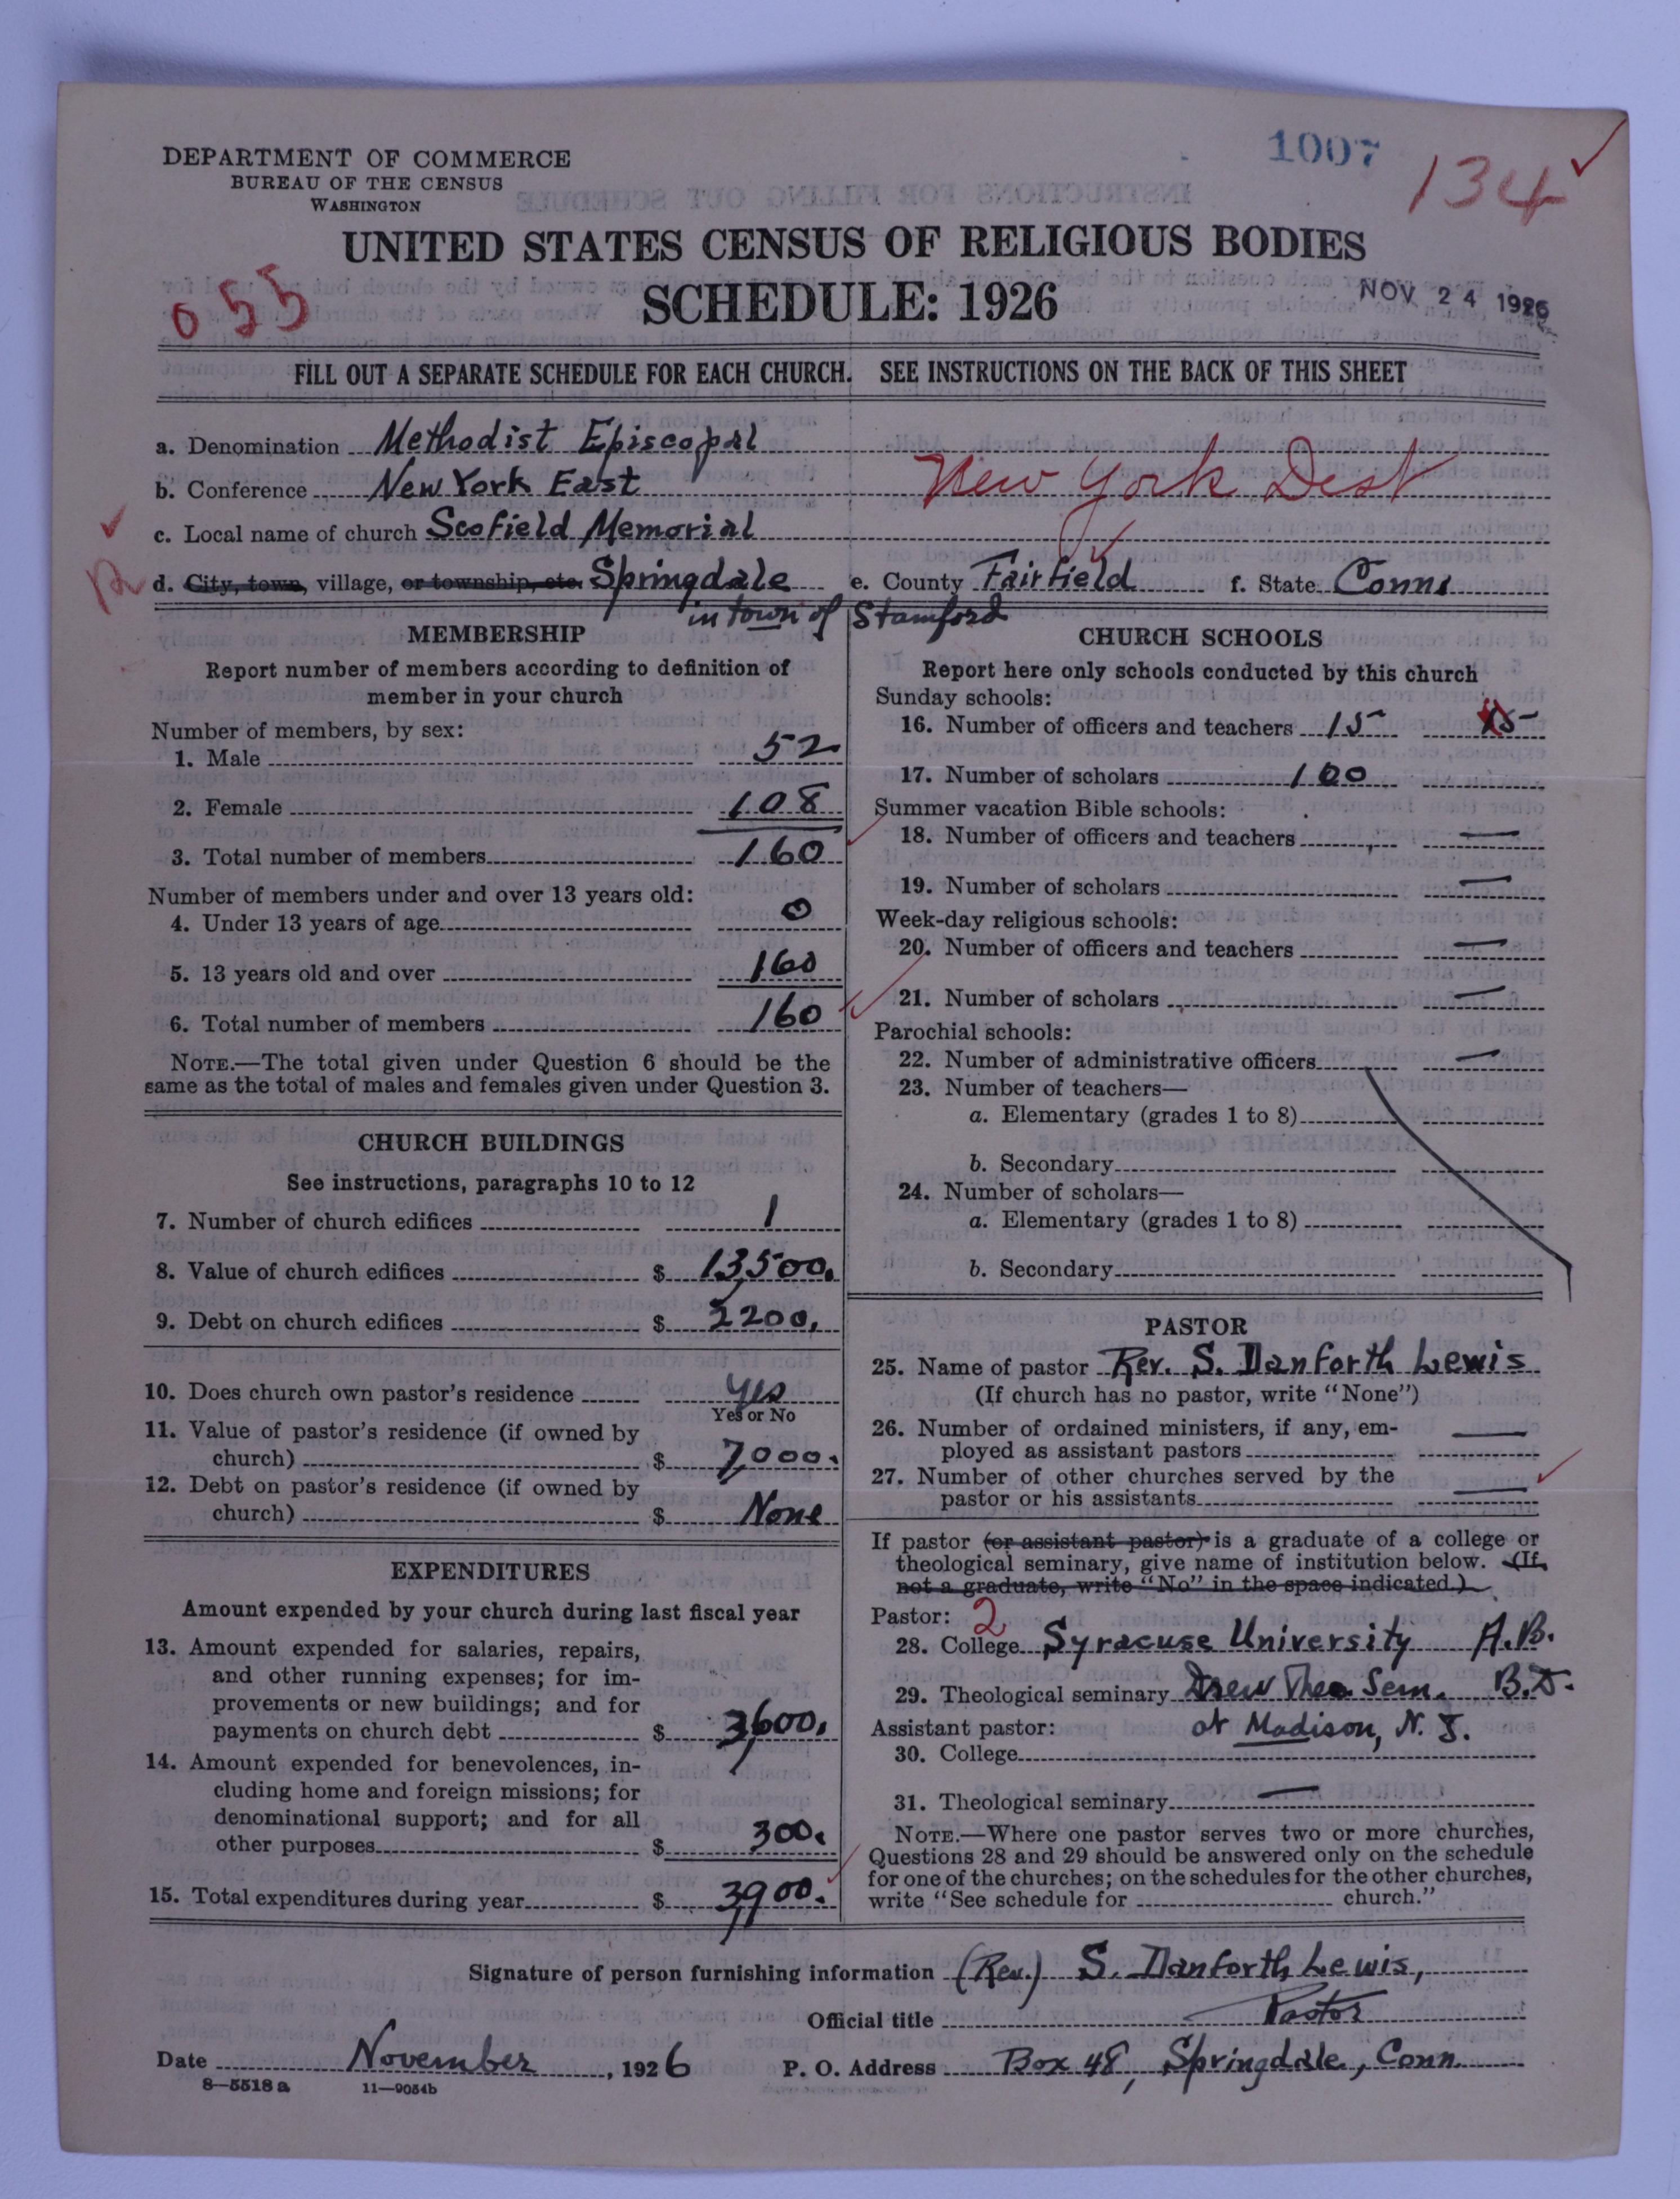 1007
134
DEPARTMENT OF COMMERCE
BUREAU OF THE CENSUS
WASHINGTON
UNITED STATES CENSUS OF RELIGIOUS BODIES
055
SCHEDULE: 1926
NOV 24 1926
FILL OUT A SEPARATE SCHEDULE FOR EACH CHURCH. SEE INSTRUCTIONS ON THE BACK OF THIS SHEET
a. Denomination Methodist Episcopal
b. Conference New York East
New York Dist
c. Local name of church Scofield Memorial
d. City, town, village, or township, etc. Springdale e. County Fairfield f. State Conn.
in town of Stamford
MEMBERSHIP
Report number of members according to definition of
member in your church
Number of members, by sex:
1. Male 52
2. Female 108
3. Total number of members 160
Number of members under and over 13 years old:
4. Under 13 years of age 0
5. 13 years old and over 160
6. Total number of members 160
NOTE.—The total given under Question 6 should be the
same as the total of males and females given under Question 3.
CHURCH BUILDINGS
See instructions, paragraphs 10 to 12
7. Number of church edifices 1
8. Value of church edifices $ 13,500.
9. Debt on church edifices $ 2200.
10. Does church own pastor's residence yes
Yes or No
11. Value of pastor's residence (if owned by
church) $ 7,000.
12. Debt on pastor's residence (if owned by
church) $ None
EXPENDITURES
Amount expended by your church during last fiscal year
13. Amount expended for salaries, repairs,
and other running expenses; for im-
provements or new buildings; and for
payments on church debt $ 3,600.
14. Amount expended for benevolences, in-
cluding home and foreign missions; for
denominational support; and for all
other purposes $ 300.
15. Total expenditures during year $ 3,900.
CHURCH SCHOOLS
Report here only schools conducted by this church
Sunday schools:
16. Number of officers and teachers 15 15
17. Number of scholars 100
Summer vacation Bible schools:
18. Number of officers and teachers —
19. Number of scholars —
Week-day religious schools:
20. Number of officers and teachers —
21. Number of scholars —
Parochial schools:
22. Number of administrative officers —
23. Number of teachers—
a. Elementary (grades 1 to 8)
b. Secondary
24. Number of scholars—
a. Elementary (grades 1 to 8)
b. Secondary
PASTOR
25. Name of pastor Rev. S. Danforth Lewis
(If church has no pastor, write "None")
26. Number of ordained ministers, if any, em-
ployed as assistant pastors —
27. Number of other churches served by the
pastor or his assistants —
If pastor (or assistant pastor) is a graduate of a college or
theological seminary, give name of institution below. (If
not a graduate, write "No" in the space indicated.)
Pastor: 2
28. College Syracuse University A.B.
29. Theological seminary Drew Theo. Sem. B.D.
at Madison, N. J.
Assistant pastor:
30. College
31. Theological seminary —
NOTE.—Where one pastor serves two or more churches,
Questions 28 and 29 should be answered only on the schedule
for one of the churches; on the schedules for the other churches,
write "See schedule for church."
Signature of person furnishing information (Rev.) S. Danforth Lewis,
Official title Pastor
Date November, 1926 P. O. Address Box 48, Springdale, Conn.
8—5518a 11—9054b